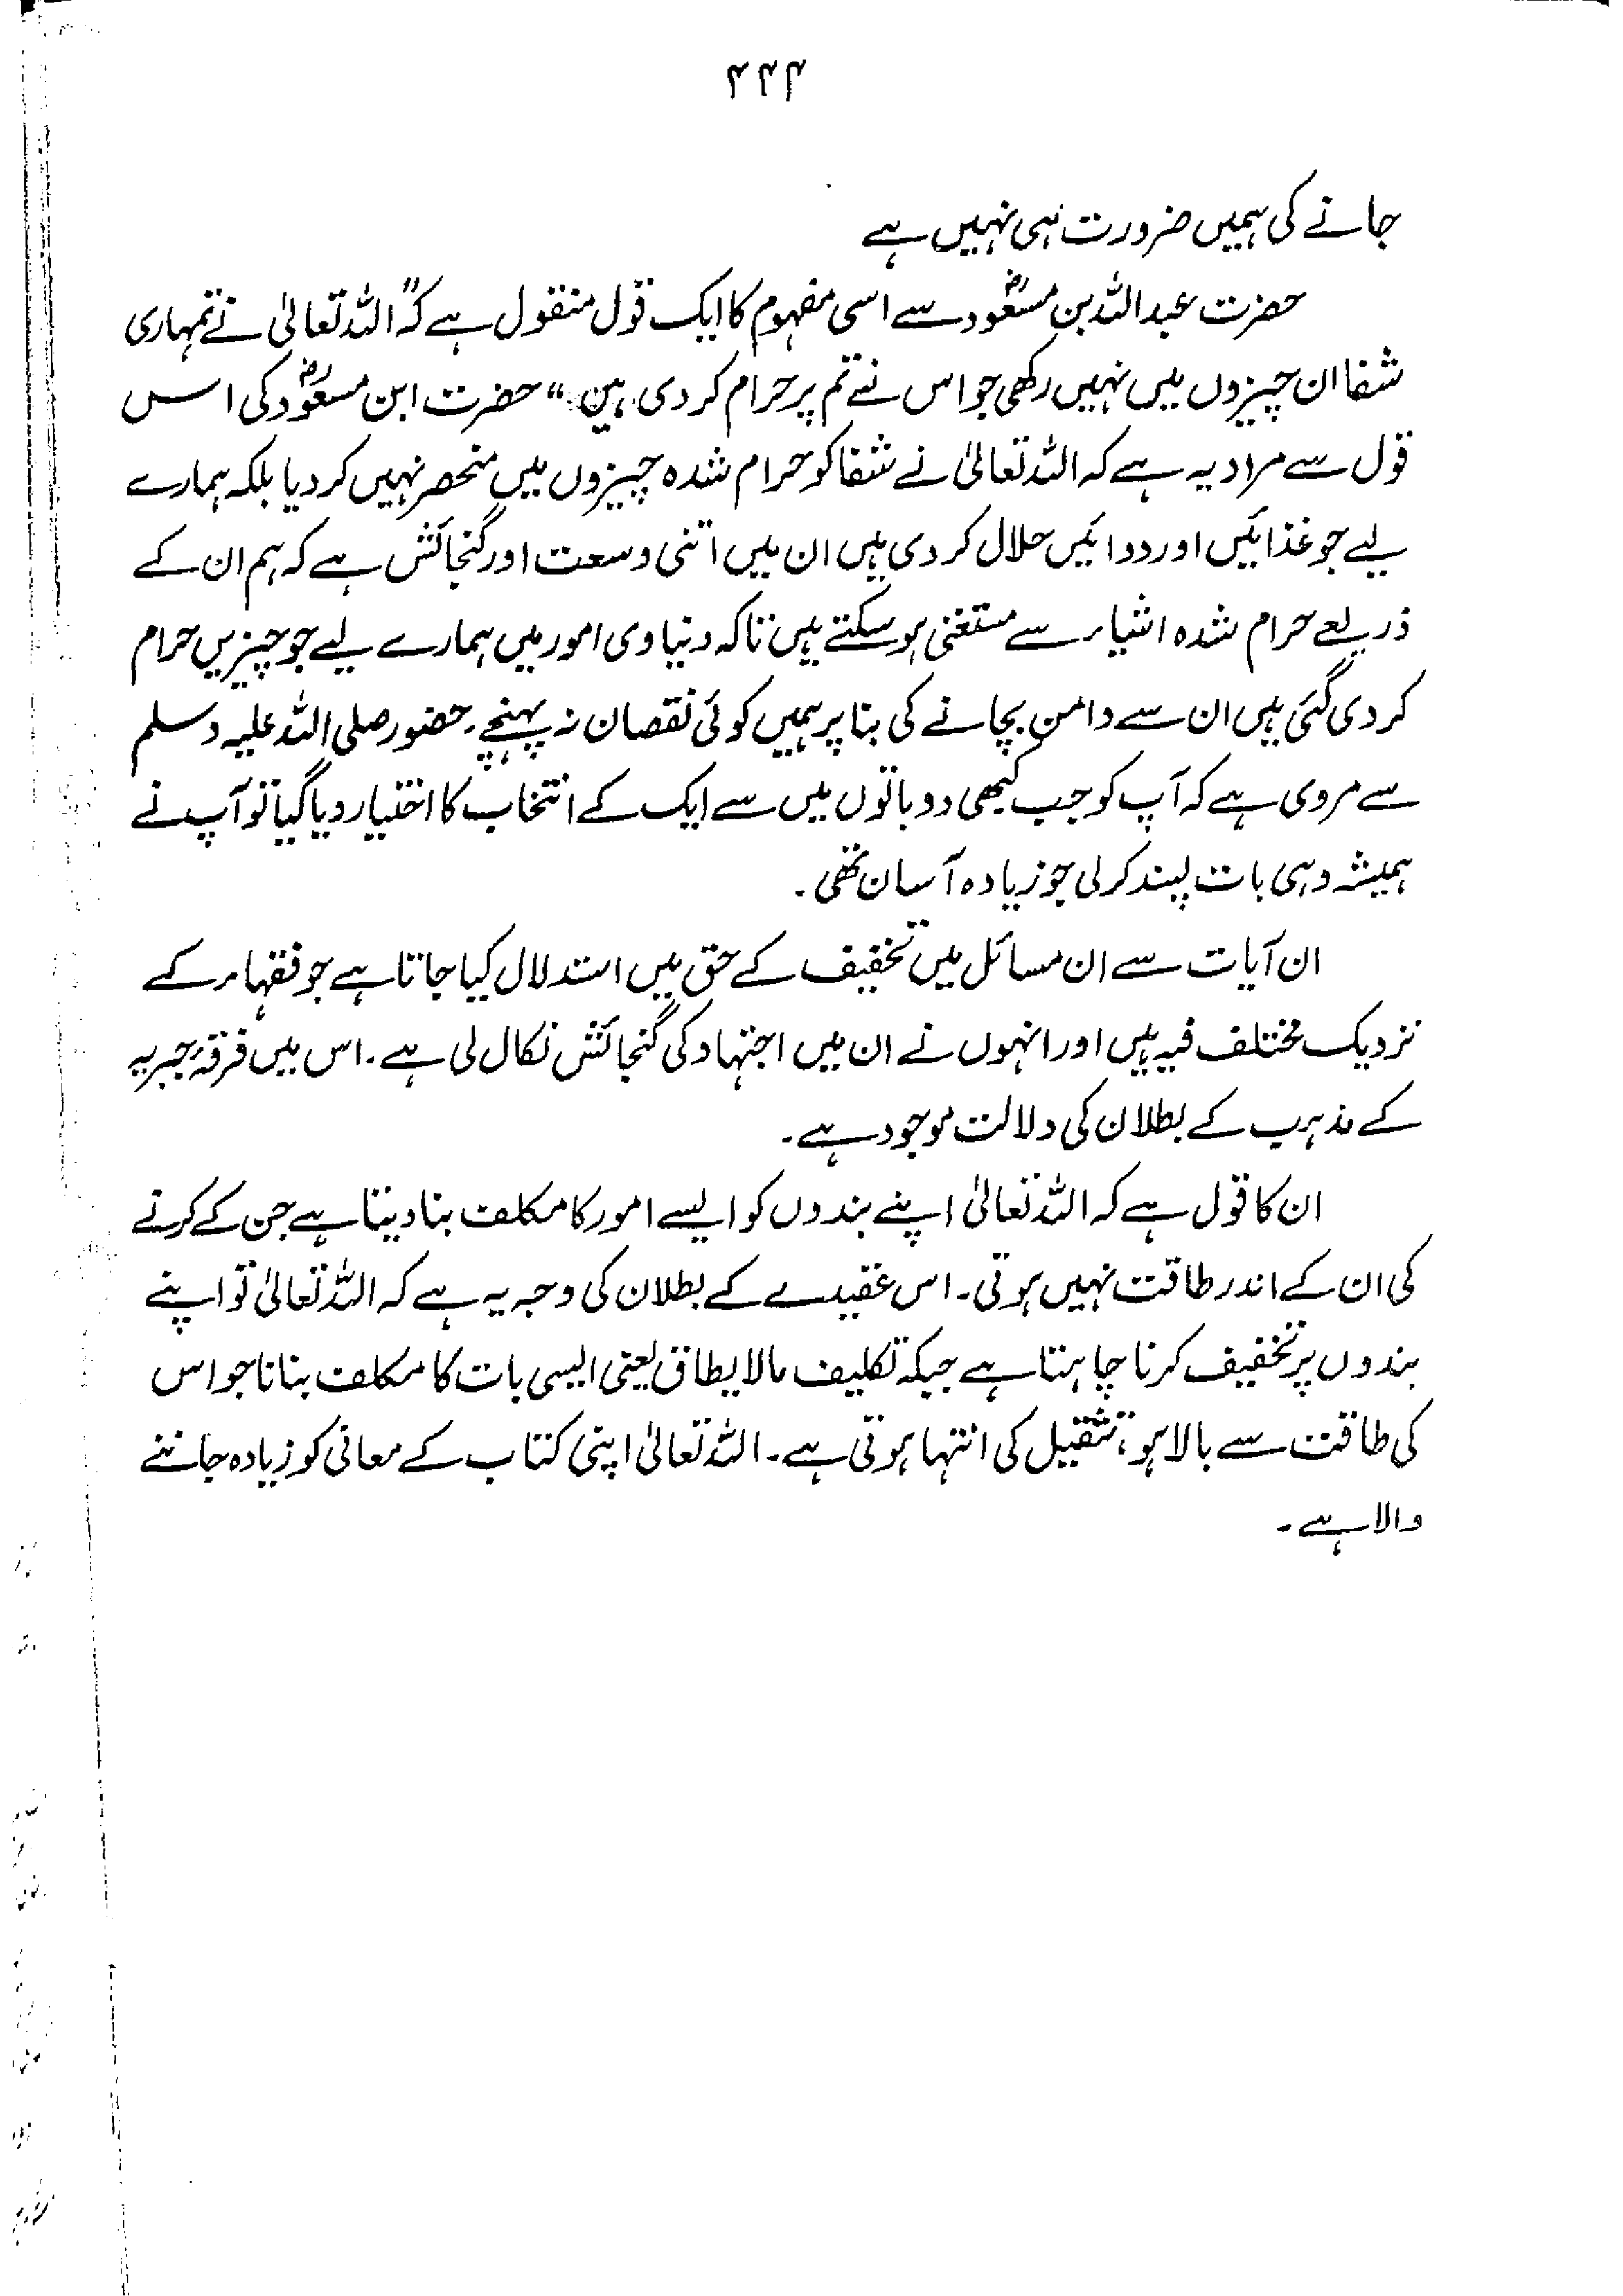 ۴۴۴
جانے کی ہمیں ضرورت ہی نہیں ہے
حضرت عبداللہ بن مسعودؓ سے اسی مفہوم کا ایک قول منقول ہے کہ "اللہ تعالیٰ نے تمہاری
شفا ان چیزوں میں نہیں رکھی جو اس نے تم پر حرام کر دی ہیں" حضرت ابن مسعودؓ کی اس
قول سے مراد یہ ہے کہ اللہ تعالیٰ نے شفا کو حرام شدہ چیزوں میں منحصر نہیں کر دیا بلکہ ہمارے
لیے جو غذائیں اور دوائیں حلال کر دی ہیں ان میں اتنی وسعت اور گنجائش ہے کہ ہم ان کے
ذریعے حرام شدہ اشیاء سے مستغنی ہو سکتے ہیں تاکہ دنیاوی امور میں ہمارے لیے جو چیزیں حرام
کر دی گئی ہیں ان سے دامن بچانے کی بنا پر ہمیں کوئی نقصان نہ پہنچے۔ حضور صلی اللہ علیہ وسلم
سے مروی ہے کہ آپ کو جب کبھی دو باتوں میں سے ایک کے انتخاب کا اختیار دیا گیا تو آپ نے
ہمیشہ وہی بات پسند کر لی جو زیادہ آسان تھی۔
ان آیات سے ان مسائل میں تخفیف کے حق میں استدلال کیا جاتا ہے جو فقہاء کے
نزدیک مختلف فیہ ہیں اور انہوں نے ان میں اجتہاد کی گنجائش نکال لی ہے۔ اس میں فرقۂ جبریہ
کے مذہب کے بطلان کی دلالت موجود ہے۔
ان کا قول ہے کہ اللہ تعالیٰ اپنے بندوں کو ایسے امور کا مکلف بنا دیتا ہے جن کے کرنے
کی ان کے اندر طاقت نہیں ہوتی۔ اس عقیدے کے بطلان کی وجہ یہ ہے کہ اللہ تعالیٰ تو اپنے
بندوں پر تخفیف کرنا چاہتا ہے جبکہ تکلیف مالا یطاق یعنی ایسی بات کا مکلف بنانا جو اس
کی طاقت سے بالا ہو، تثقیل کی انتہا ہوتی ہے۔ اللہ تعالیٰ اپنی کتاب کے معانی کو زیادہ جاننے
والا ہے۔